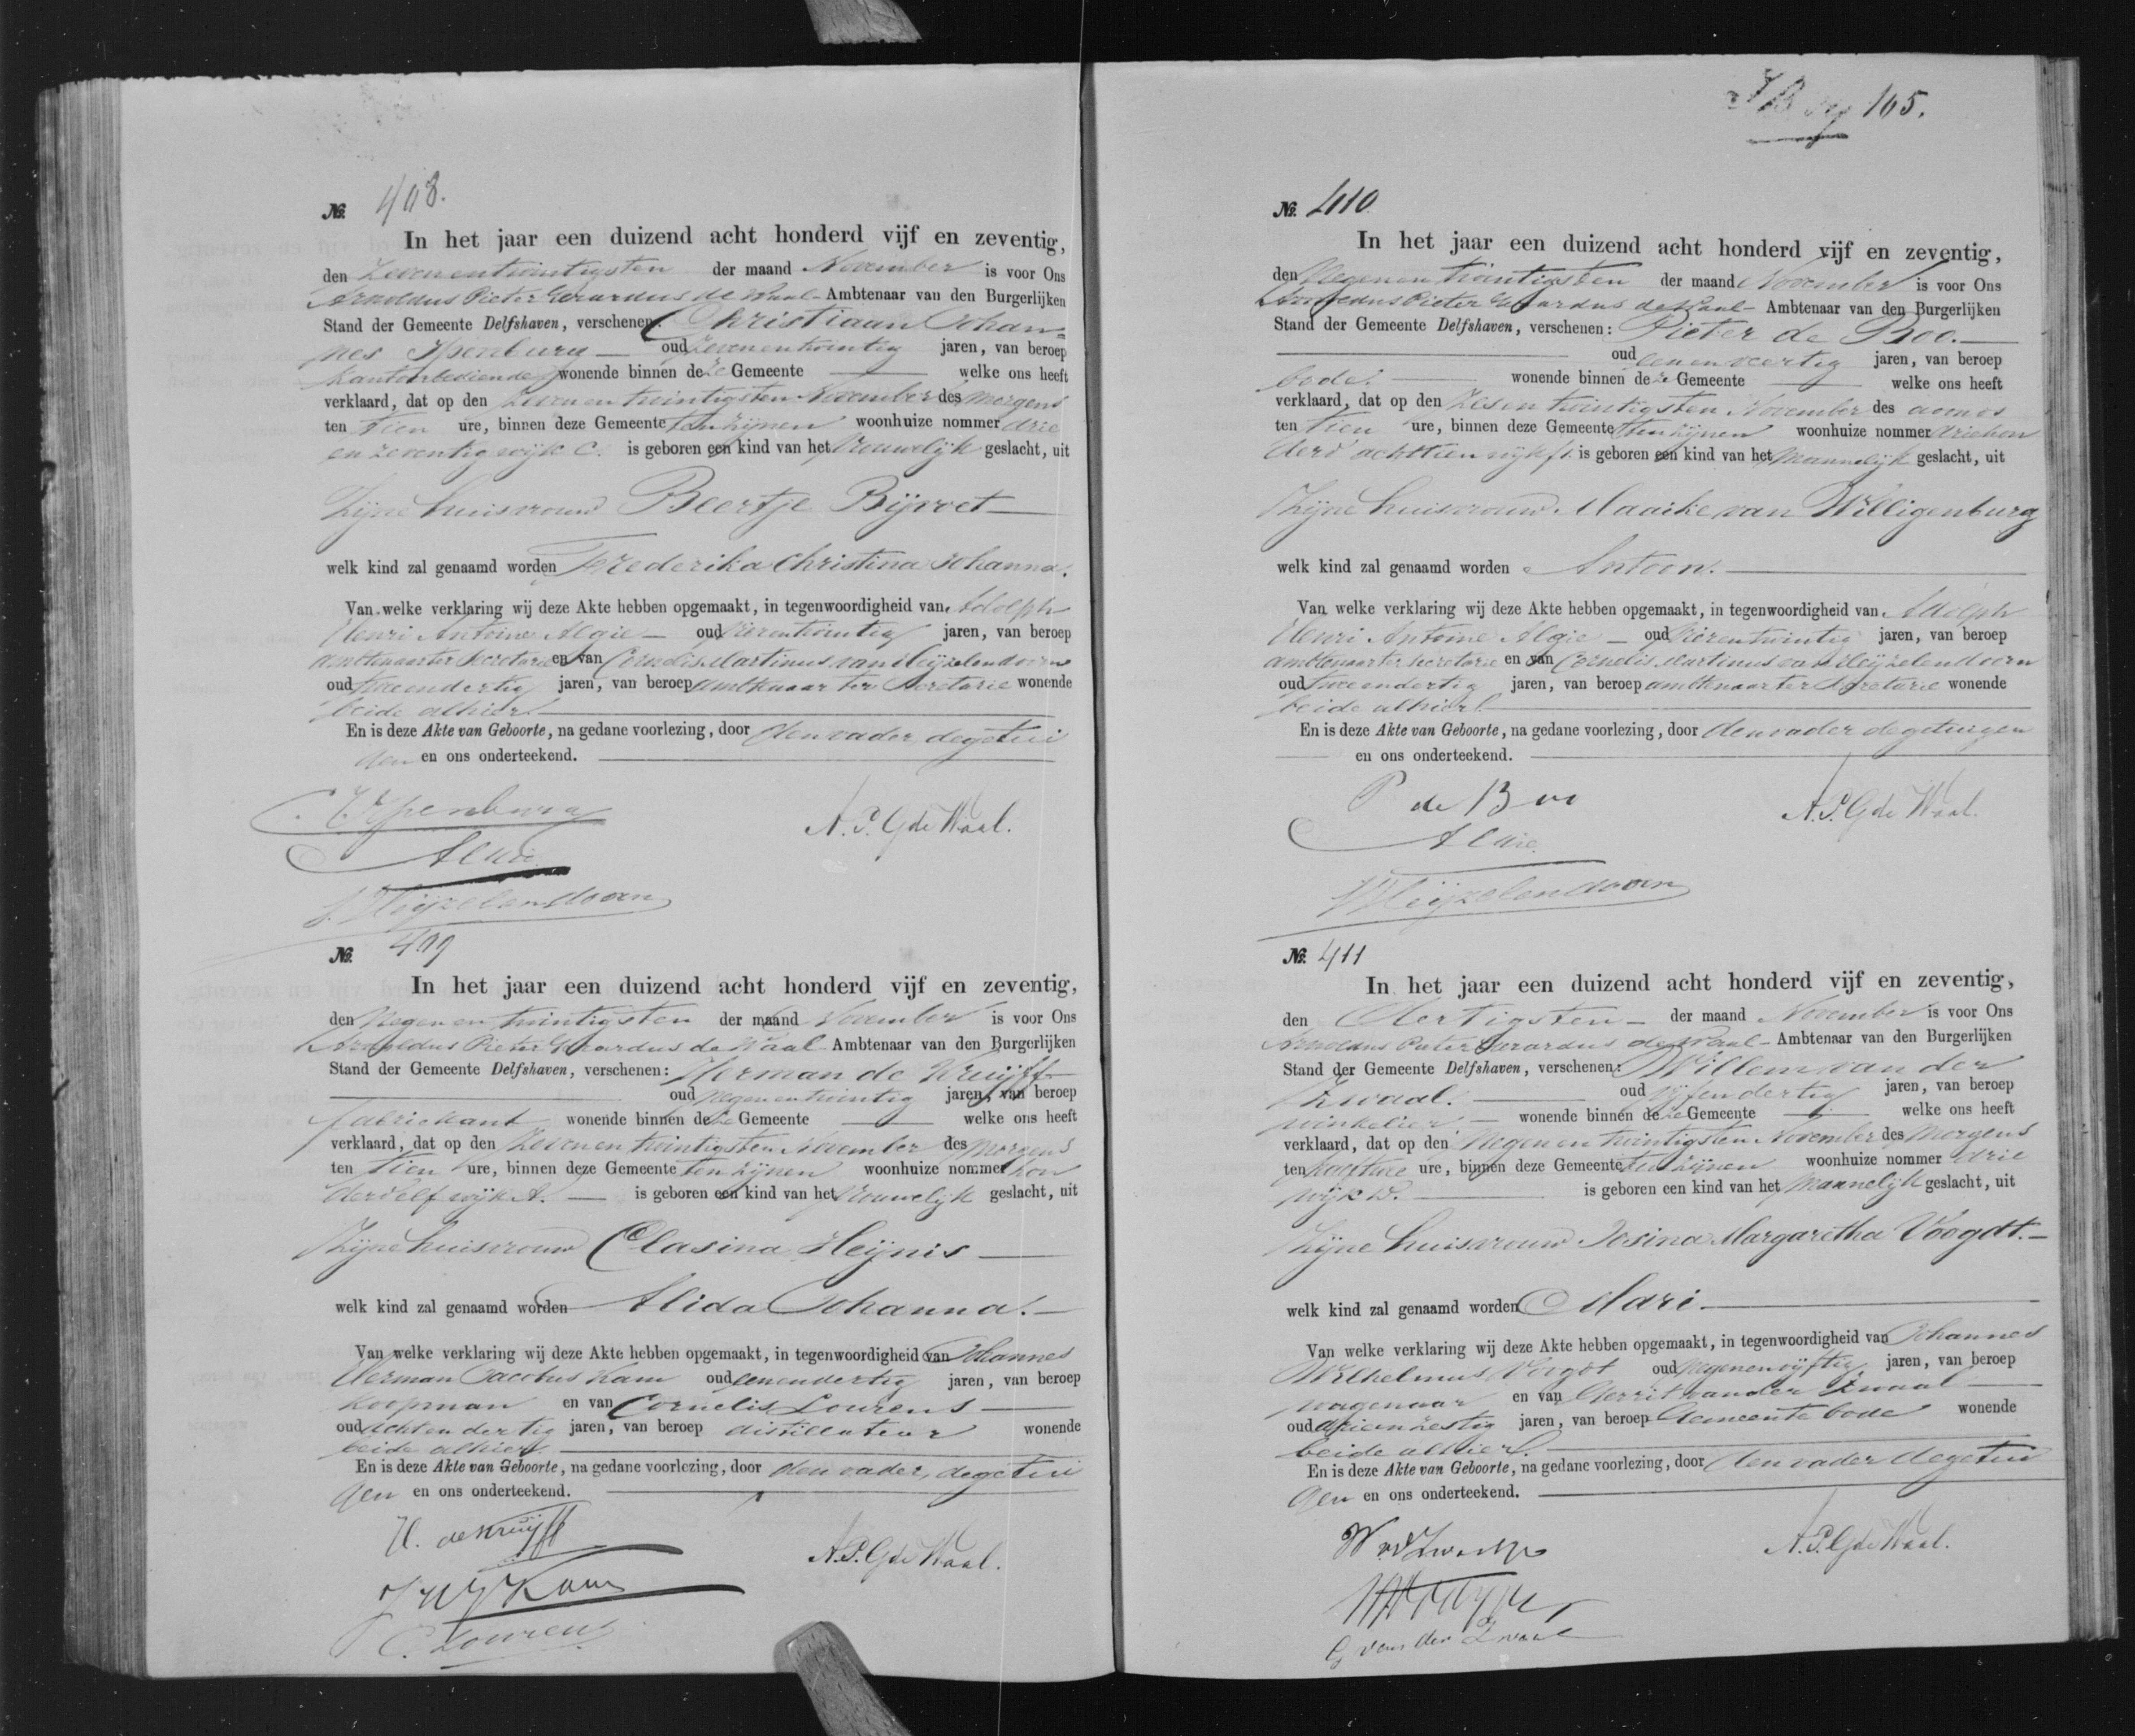 №. 408.
In het jaar een duizend acht honderd vijf en zeventig,
den Zevenentwintigsten der maand November is voor Ons
Arnoldus Pieter Gerardus de Waal Ambtenaar van den Burgerlijken
Stand der Gemeente Delfshaven, verschenen: Christiaan Johan=
nes Ypenburg oud zevenentwintig jaren, van beroep
kantoorbediende wonende binnen deze Gemeente welke ons heeft
verklaard, dat op den zevenentwintigsten November des morgens
ten tien ure, binnen deze Gemeente ten zijnen woonhuize nommer drie
en zeventig wijk C. is geboren een kind van het vrouwelijk geslacht, uit
Zijne huisvrouw Beertje Bijvoet
welk kind zal genaamd worden Frederika Christina Johanna.
Van welke verklaring wij deze Akte hebben opgemaakt, in tegenwoordigheid van Adolph
Henri Antoine Algie oud vierentwintig jaren, van beroep
ambtenaar ter Secretarie en van Cornelis Martinus van Meijzelendoorn
oud tweeendertig jaren, van beroep ambtenaar ter Secretarie wonende
beide alhier.
En is deze Akte van Geboorte, na gedane voorlezing, door den vader, de getui
gen en ons onderteekend.
C. J. Ypenburg
A.P.G de Waal.
Algie
Meijzelendoorn
№. 409
In het jaar een duizend acht honderd vijf en zeventig,
den Negenentwintigsten der maand November is voor Ons
Arnoldus Pieter Gerardus de Waal Ambtenaar van den Burgerlijken
Stand der Gemeente Delfshaven, verschenen: Herman de Kruijff
oud negenentwintig jaren, van beroep
fabriekant wonende binnen deze Gemeente welke ons heeft
verklaard, dat op den zevenentwintigsten November des morgens
ten tien ure, binnen deze Gemeente ten zijnen woonhuize nommer hon
derd elf wijk A. is geboren een kind van het vrouwelijk geslacht, uit
Zijne huisvrouw Clasina Heijnis
welk kind zal genaamd worden Alida Johanna.
Van welke verklaring wij deze Akte hebben opgemaakt, in tegenwoordigheid van Johannes
Herman Jacobus Kam oud eenendertig jaren, van beroep
koopman en van Cornelis Lourens
oud achtendertig jaren, van beroep distillateur wonende
beide alhier.
En is deze Akte van Geboorte, na gedane voorlezing, door den vader, de getui
gen en ons onderteekend.
H. de Kruijff
A.P.G de Waal.
J H J Kam
C. Lourens
165.
№. 410
In het jaar een duizend acht honderd vijf en zeventig,
den Negenentwintigsten der maand November is voor Ons
Arnoldus Pieter Gerardus de Waal Ambtenaar van den Burgerlijken
Stand der Gemeente Delfshaven, verschenen: Pieter de Boo.
oud eenenveertig jaren, van beroep
bode. wonende binnen deze Gemeente welke ons heeft
verklaard, dat op den zesentwintigsten November des avonds
ten tien ure, binnen deze Gemeente ten zijnen woonhuize nommer driehon
derd achttien wijk is geboren een kind van het mannelijk geslacht, uit
Zijne huisvrouw Maaike van Willigenburg
welk kind zal genaamd worden Antoon.
Van welke verklaring wij deze Akte hebben opgemaakt, in tegenwoordigheid van Adolph
Henri Antoine Algie oud vierentwintig jaren, van beroep
ambtenaar ter Secretarie en van Cornelis Martinus van Meijzelendoorn
oud tweeendertig jaren, van beroep ambtenaar ter Secretarie wonende
beide alhier.
En is deze Akte van Geboorte, na gedane voorlezing, door den vader de getuigen
en ons onderteekend.
P de Boo
A.P.G de Waal.
Algie
Meijzelendoorn
№. 411
In het jaar een duizend acht honderd vijf en zeventig,
den Dertigsten der maand November is voor Ons
Arnoldus Pieter Gerardus de Waal Ambtenaar van den Burgerlijken
Stand der Gemeente Delfshaven, verschenen: Willem van der
Zwaal. oud vijfendertig jaren, van beroep
winkelier wonende binnen deze Gemeente welke ons heeft
verklaard, dat op den Negenentwintigsten November des morgens
ten half twee ure, binnen deze Gemeente ten zijnen woonhuize nommer drie
wijk D. is geboren een kind van het mannelijk geslacht, uit
Zijne huisvrouw Josina Margaretha Voogdt.
welk kind zal genaamd worden Mari
Van welke verklaring wij deze Akte hebben opgemaakt, in tegenwoordigheid van Johannes
Wilhelmus Voogdt oud negenenvijftig jaren, van beroep
wagenaar en van Gerrit van der Zwaal
oud drieenzestig jaren, van beroep Gemeentebode wonende
beide alhier.
En is deze Akte van Geboorte, na gedane voorlezing, door den vader de getui
gen en ons onderteekend.
W vd Zwaal
A.P.G de Waal.
G van der Zwaal